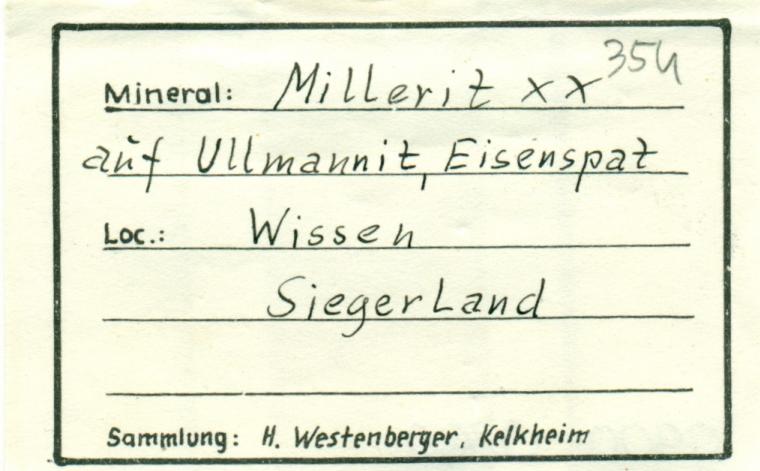 Mineral: Millerit xx
auf Ullmannit, Eisenspat
Loc.: Wissen
Siegerland
Sammlung: H. Westenberger, Kelkheim